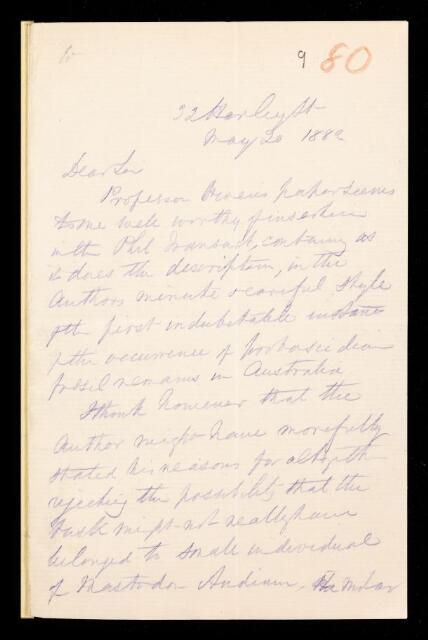 9 80
32 Harley St
May 20 1882
Dear Sir
Professor Owen's paper seems
to me well worthy of insertion
in the Phil Transact, containing as
it does the description, in the
Authors minute & careful style
of the first indubitable instance
of the occurrence of proboscidian
fossil remains in Australia
I think however that the
Author might have more fully
stated his reasons for altogether
rejecting the possibility that the
tusk might not really have
belonged to male individual
of Mastodon Andium, molar